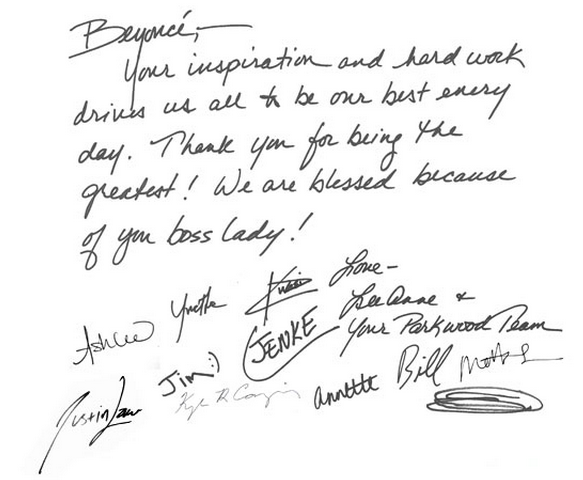 Beyoncé,—
Your inspiration and hard work
drives us all to be our best every
day. Thank you for being the
greatest! We are blessed because
of you boss lady!
Love-
LeeAnne &
Your Parkwood Team
Ashlee Yvette JENKE
Jim:) Annette Bill
Justin Law